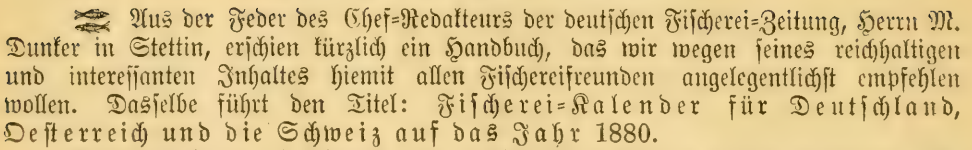 Aus der Feder des Chef-Redakteurs der deutschen Fischerei-Zeitung, Herrn M.
Dunker in Stettin, erschien kürzlich ein Handbuch, das wir wegen seines reichhaltigen
und interessanten Inhaltes hiemit allen Fischereifreunden angelegentlichst empfehlen
wollen. Dasselbe führt den Titel: Fischerei-Kalender für Deutschland,
Oesterreich und die Schweiz auf das Jahr 1880.